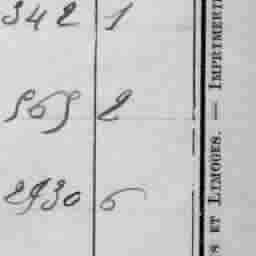 342 1
565 2
2930 6
S ET LIMOGES. — IMPRIMERIE